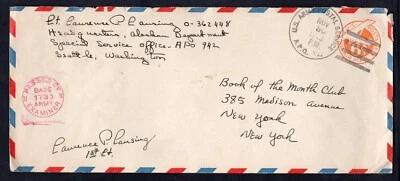 Lt. Laurence P. Lansing O-362448
Headquarters, Alaskan Department
Special Service Office - APO 942
Seattle, Washington
U.S. ARMY POSTAL SERVICE
NOV
A.P.O.
PASSED BY
BASE
1733
ARMY
EXAMINER
Book of the Month Club
385 Madison Avenue
New York
New York
Laurence P. Lansing
1st Lt.